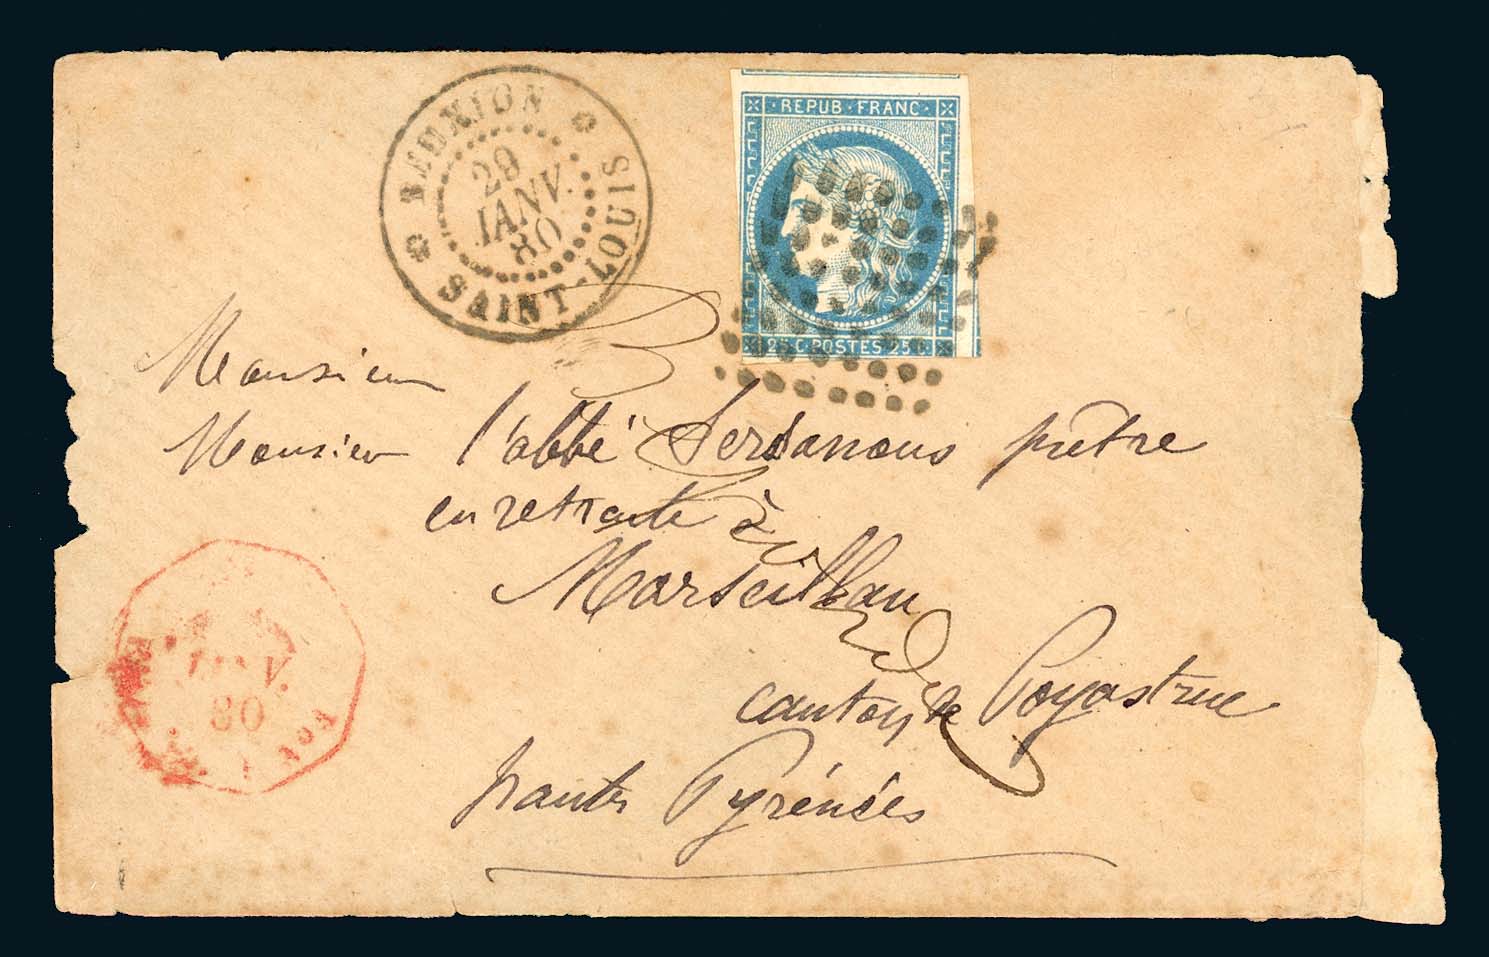 REUNION
29
JANV.
80
SAINT-LOUIS
REPUB · FRANC ·
25 C · POSTES 25 C ·
Monsieur
Monsieur l'abbé prêtre
en retraite à
Marseillan
canton de Poyastruc
hautes Pyrénées
JANV.
80